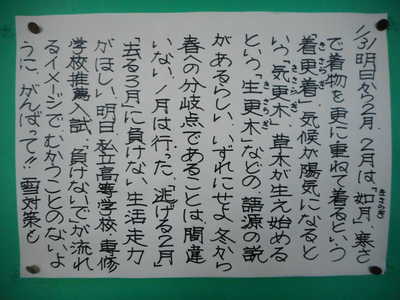 1/31 明日から2月、2月は、「如月」寒さ
きさらぎ
で着物を更に重ねて着るという
「着更着」、気候が陽気になると
きさらぎ
いう「気更来」、草木が生え始める
きさらぎ
という「生更木」などの、語源の説
きさらぎ
があるらしい、いずれにせよ、冬から
春への分岐点であることは、間違
いない、1月は行った、「逃げる2月」
「去る3月」に負けない、生活走力
がほしい、明日、私立高等学校・専修
学校推薦入試、「負けないで」が流れ
るイメージで、むかうことのないよ
うに、がんばって!!雪対策も